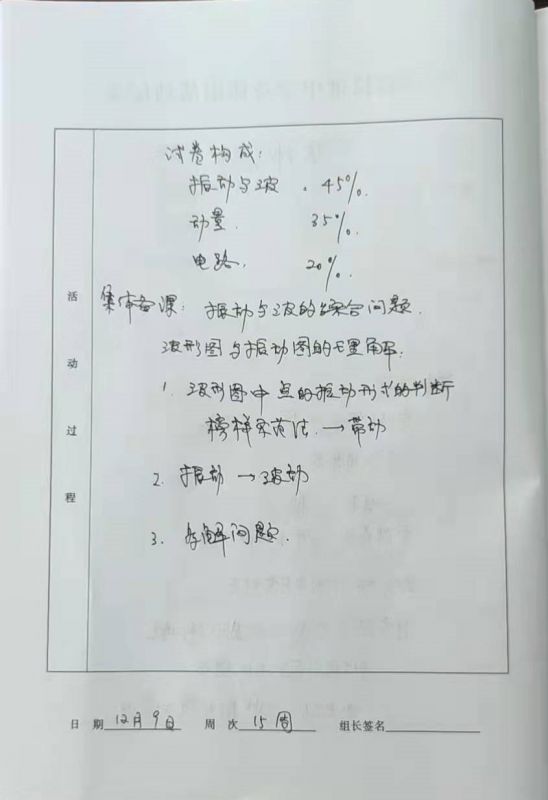 试卷构成:
振动与波 . 45%.
动量. 35%.
电路. 20%.
集中备课: 振动与波的综合问题.
波形图与振动图的 理解:
1. 波形图中 点的振动形式的判断
榜样示范法. → 带动
2. 振动 → 波动
3. 多解问题.
活动过程
日 期 12月9日 周 次 15周 组长签名